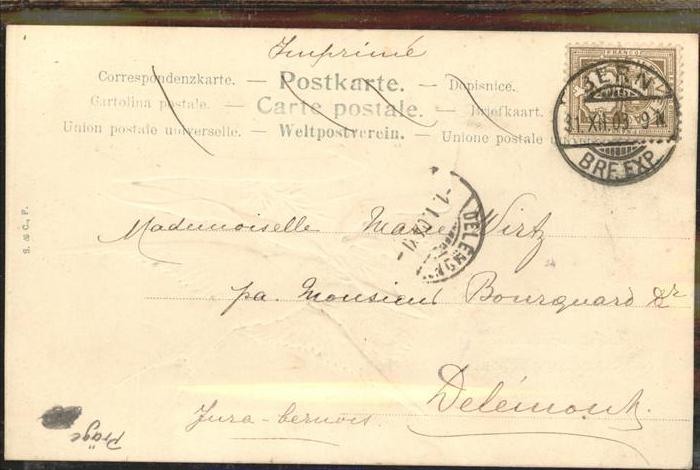 Imprimé
Correspondenzkarte. — Postkarte. — Dopisnice.
Cartolina postale. — Carte postale. — Briefkaart.
Union postale universelle. — Weltpostverein. — Unione postale
FRANCO
BERN
31.XII.03. 9
BRF. EXP.
DELEMONT
Mademoiselle Marie Wirtz
pa. Monsieur Bourquard Dr
Delémont.
Jura-bernois.
S. & C., F.
Präge